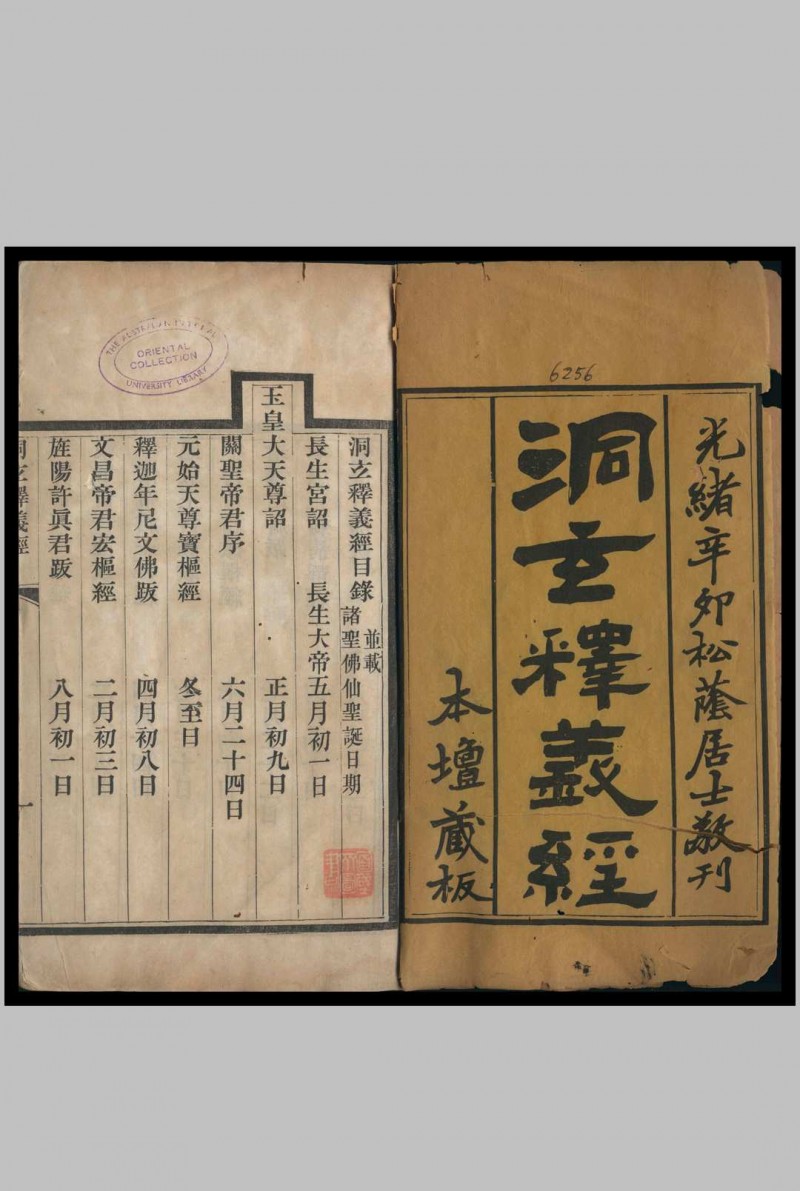 光緒辛卯松蔭居士敬刊
洞玄釋義經
本壇藏板
6256
洞玄釋義經目錄 並載諸聖佛仙聖誕日期
長生宮詔 長生大帝五月初一日
玉皇大天尊詔 正月初九日
關聖帝君序 六月二十四日
元始天尊寶樞經 冬至日
釋迦年尼文佛跋 四月初八日
文昌帝君宏樞經 二月初三日
旌陽許眞君跋 八月初一日
洞玄釋義經
一
THE AUSTRALIAN NATIONAL
ORIENTAL
COLLECTION
UNIVERSITY LIBRARY